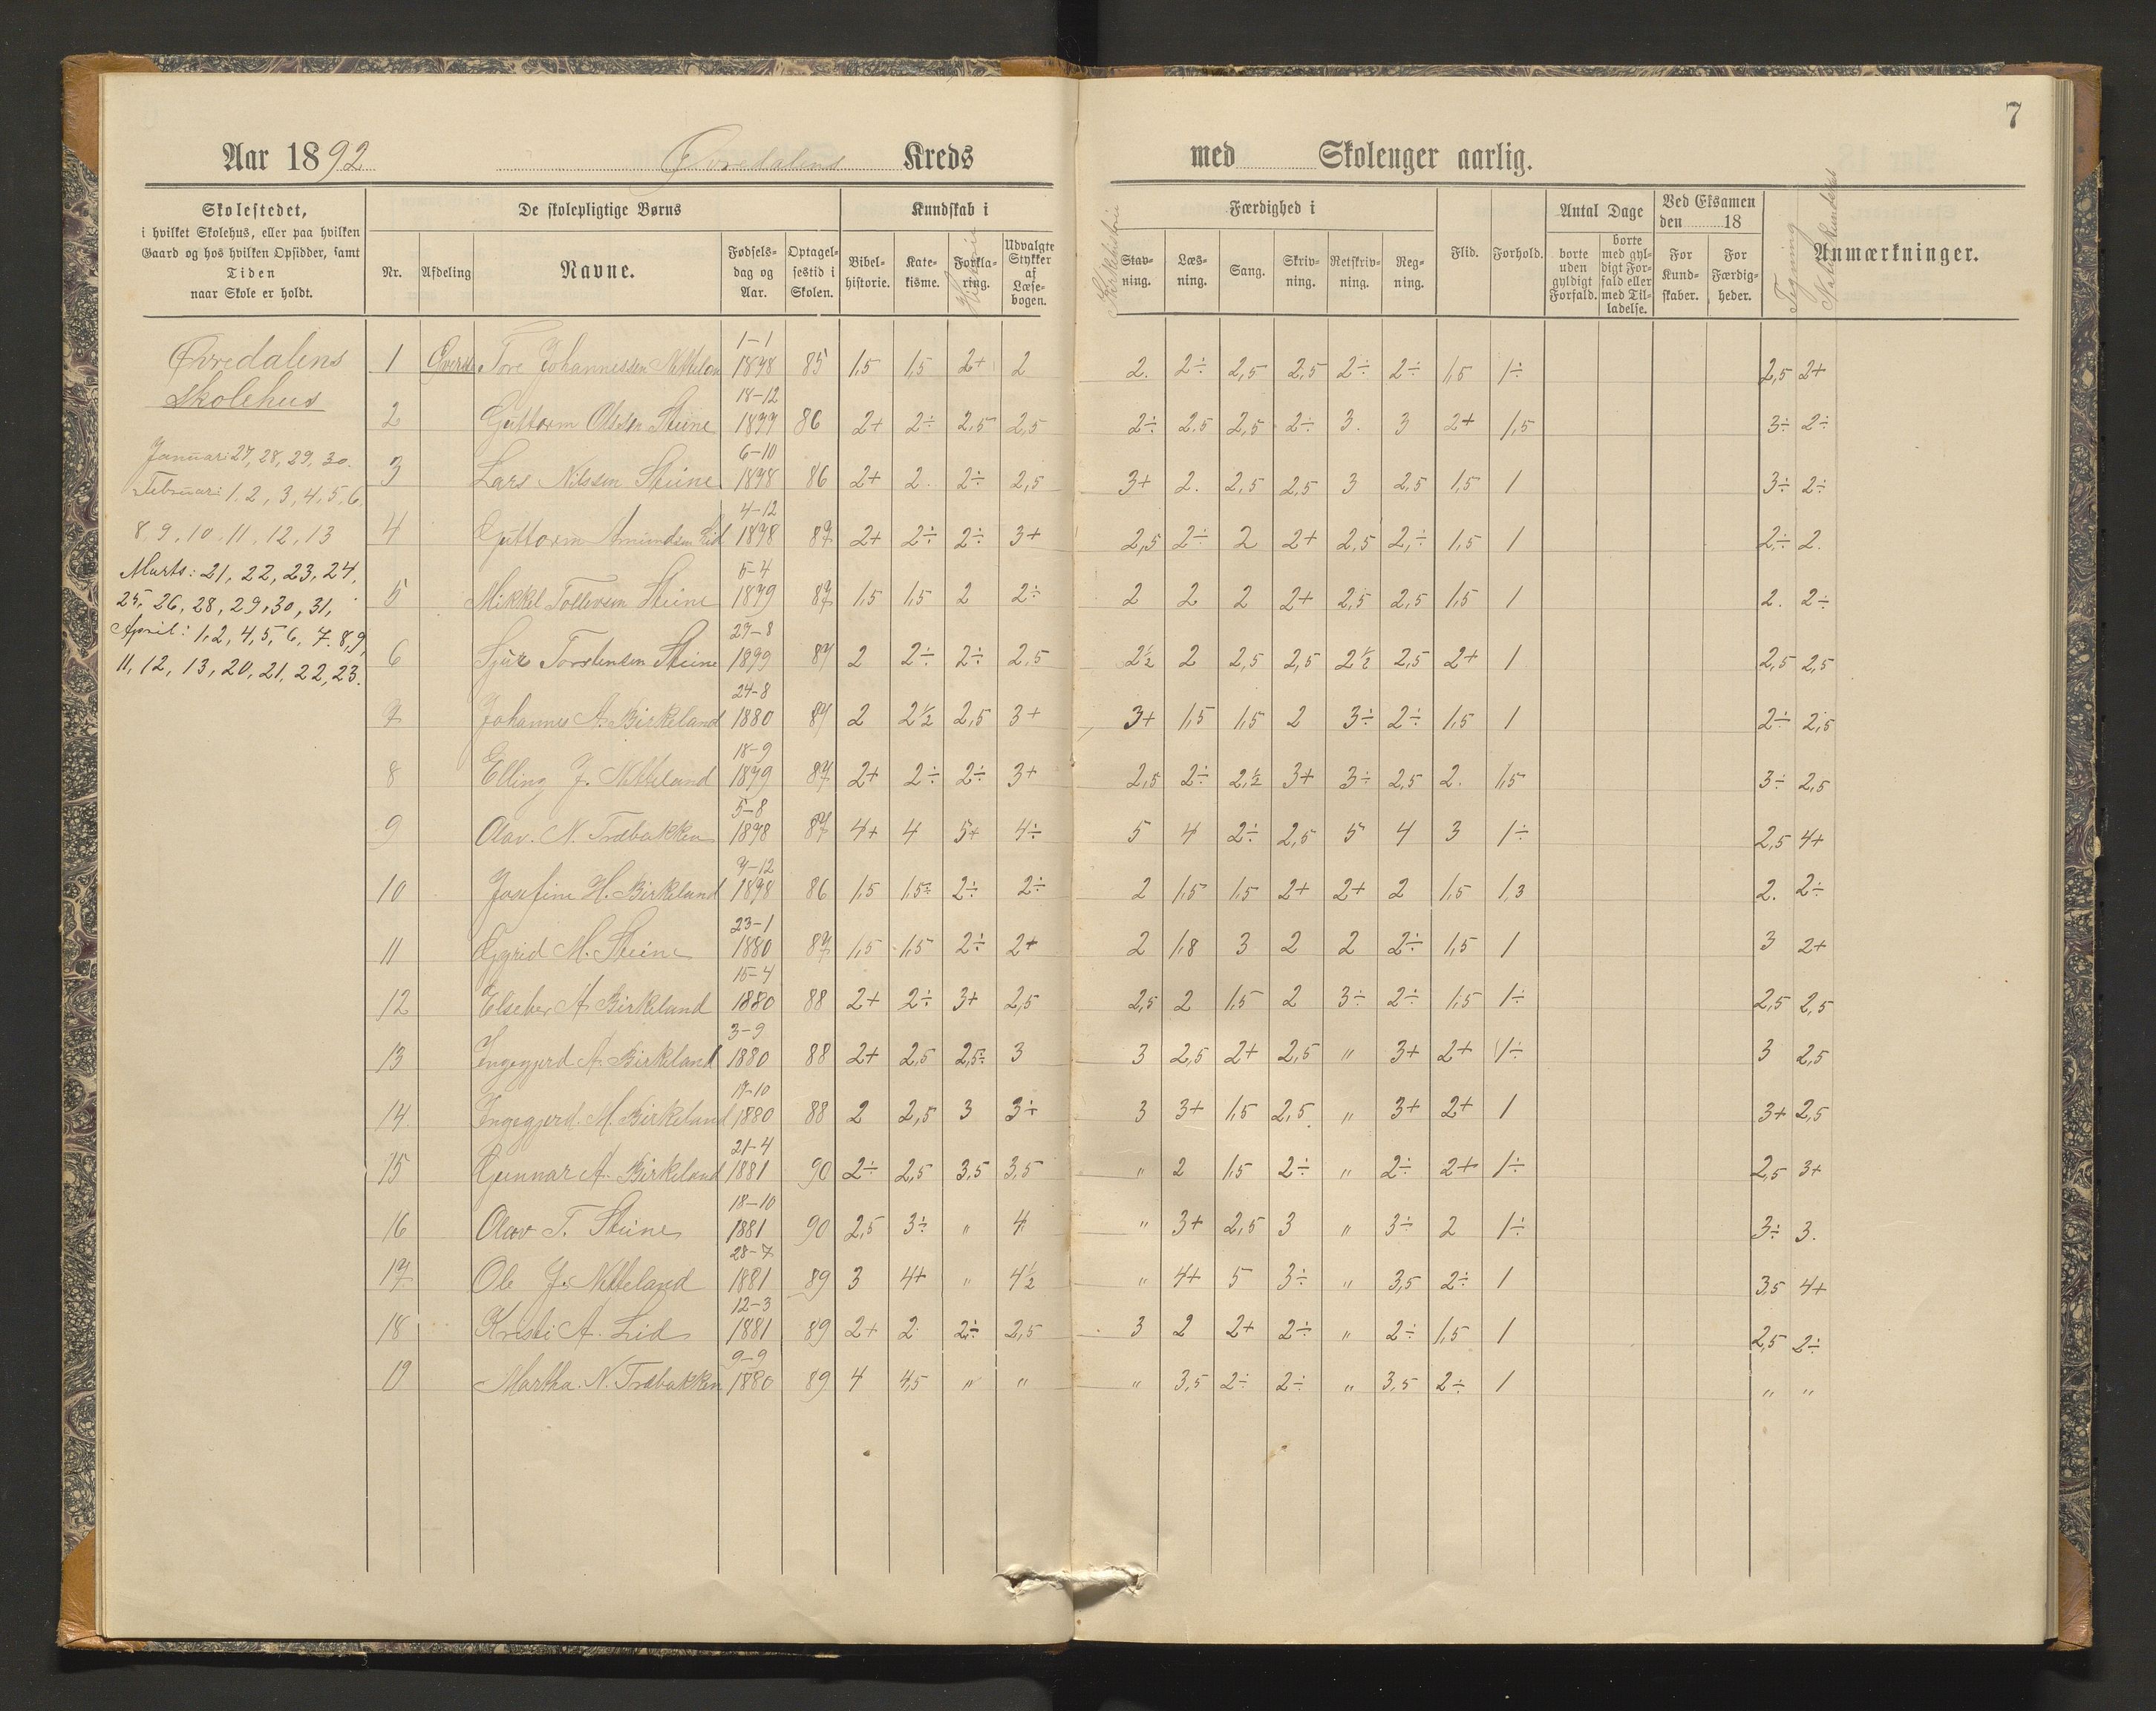 7
Aar 1892 Øvredalens Kreds med Skoleuger aarlig.
Skolestedet, i hvilket Skolehus, eller paa hvilken Gaard og hos hvilken Opsidder, samt Tiden naar Skole er holdt.
De skolepligtige Børns
Nr. Afdeling Navne. Fødsels-dag og Aar. Optagel-sestid i Skolen.
Kundskab i
Bibel-historie. Kate-kisme. Forkla-ring. Historie Udvalgte Stykker af Læse-bogen.
Kirkehistorie
Færdighed i
Stav-ning. Læs-ning. Sang. Skriv-ning. Retskriv-ning. Reg-ning.
Flid. Forhold.
Antal Dage
borte uden gyldigt Forfald. borte med gyl-digt For-fald eller med Til-ladelse.
Ved Eksamen den 18
For Kund-skaber. For Færdig-heder.
Tegning
Naturkundskab
Anmærkninger.
Øvredalens
Skolehus
Januar: 27, 28, 29, 30.
Februar: 1, 2, 3, 4, 5, 6,
8, 9, 10, 11, 12, 13
Marts: 21, 22, 23, 24,
25, 26, 28, 29, 30, 31,
April: 1, 2, 4, 5, 6, 7. 8, 9,
11, 12, 13, 20, 21, 22, 23.
1 Øverste Tore Johannessen 1-1 1878 85 1,5 1,5 2+ 2 2. 2÷ 2,5 2,5 2÷ 2÷ 1,5 1÷ 2,5 2+
2 Guttorm Olssen Steine 18-12 1877 86 2+ 2÷ 2,5 2,5 2÷ 2,5 2,5 2÷ 3. 3 2+ 1,5 3÷ 2÷
3 Lars Nilssen Steine 6-10 1878 86 2+ 2. 2÷ 2,5 3+ 2. 2,5 2,5 3 2,5 1,5 1 3÷ 2÷
4 Guttorm Amundsen Lid 4-12 1878 87 2+ 2÷ 2÷ 3+ 2,5 2÷ 2 2+ 2,5 2÷ 1,5 1 2÷ 2.
5 Mikkel Tollevsen Steine 5-4 1879 87 1,5 1,5 2 2÷ 2 2 2 2+ 2,5 2,5 1,5 1 2. 2÷
6 Sjur Torstensen Steine 27-8 1879 87 2 2÷ 2÷ 2,5 2½ 2 2,5 2,5 2½ 2,5 2+ 1 2,5 2,5
7 Johannes A. Birkeland 24-8 1880 87 2 2½ 2,5 3+ 3+ 1,5 1,5 2 3÷ 2÷ 1,5 1 2÷ 2,5
8 Elling J. Netteland 18-9 1879 87 2+ 2÷ 2÷ 3+ 2,5 2÷ 2,½ 3+ 3÷ 2,5 2. 1,5 3÷ 2,5
9 Olav. N. Træbakken 5-8 1878 87 4+ 4 5+ 4÷ 5 4 2÷ 2,5 5 4 3 1÷ 2,5 4+
10 Josefine H. Birkeland 7-12 1878 86 1,5 1,5÷ 2÷ 2÷ 2 1,5 1,5 2+ 2+ 2 1,5 1,3 2. 2÷
11 M. Steine 23-1 1880 87 1,5 1,5 2÷ 2+ 2 1,8 3 2 2 2÷ 1,5 1 3 2+
12 A. Birkeland 15-4 1880 88 2+ 2÷ 3+ 2,5 2,5 2 1,5 2 3÷ 2÷ 1,5 1÷ 2,5 2,5
13 Ingegjerd A. Birkeland 3-9 1880 88 2+ 2,5 2,5÷ 3 3 2,5 2+ 2,5 " 3+ 2+ 1÷ 3 2,5
14. Ingegjerd. M. Birkeland 17-10 1880 88 2 2,5 3 3÷ 3 3+ 1,5 2,5. " 3+ 2+ 1 3+ 2,5
15 Gunnar A. Birkeland 21-4 1881 90 2÷ 2,5 3,5 3,5 " 2 1,5 2÷ " 2÷ 2+ 1÷ 2,5 3+
16 Olav T. Steine 18-10 1881 90 2,5 3÷ " 4 " 3+ 2,5 3 " 3÷ 2 1÷ 3÷ 3.
17 Ole J. Netteland 28-7 1881 89 3 4+ " 4½ " 4+ 5 3÷ " 3,5 2÷ 1 3,5 4+
18 Kristi A. Lid 12-3 1881 89 2+ 2 2÷ 2,5 3 2 2+ 2÷ " 2÷ 1,5 1 2,5 2÷
19 Martha. N. Træbakken 9-9 1880 89 4 4,5 " " " 3,5 2÷ 2÷ " 3,5 2÷ 1 " "